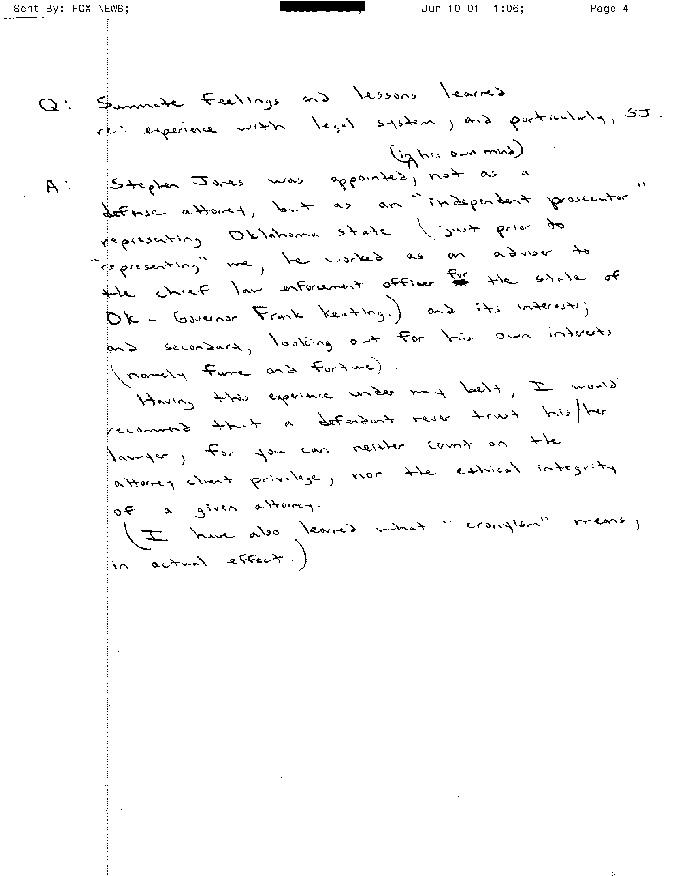 Sent By: FOX NEWS; Jun 10 01 1:06; Page 4
Q: Summate feelings and lessons learned
re: experience with legal system, and particularly, SJ.
(in his own mind)
A: Stephen Jones was appointed, not as a
defense attorney, but as an "independent prosecutor"
representing Oklahoma state (just prior to
"representing" me, he worked as an advisor to
the chief law enforcement officer for the state of
OK - Governor Frank Keating.) and its interests;
and secondard, looking out for his own interests
(namely fame and fortune).
Having this experience under my belt, I would
recommend that a defendant never trust his/her
lawyer, for you can neither count on the
attorney client privilege, nor the ethical integrity
of a given attorney.
(I have also learned what "cronyism" means,
in actual effect.)